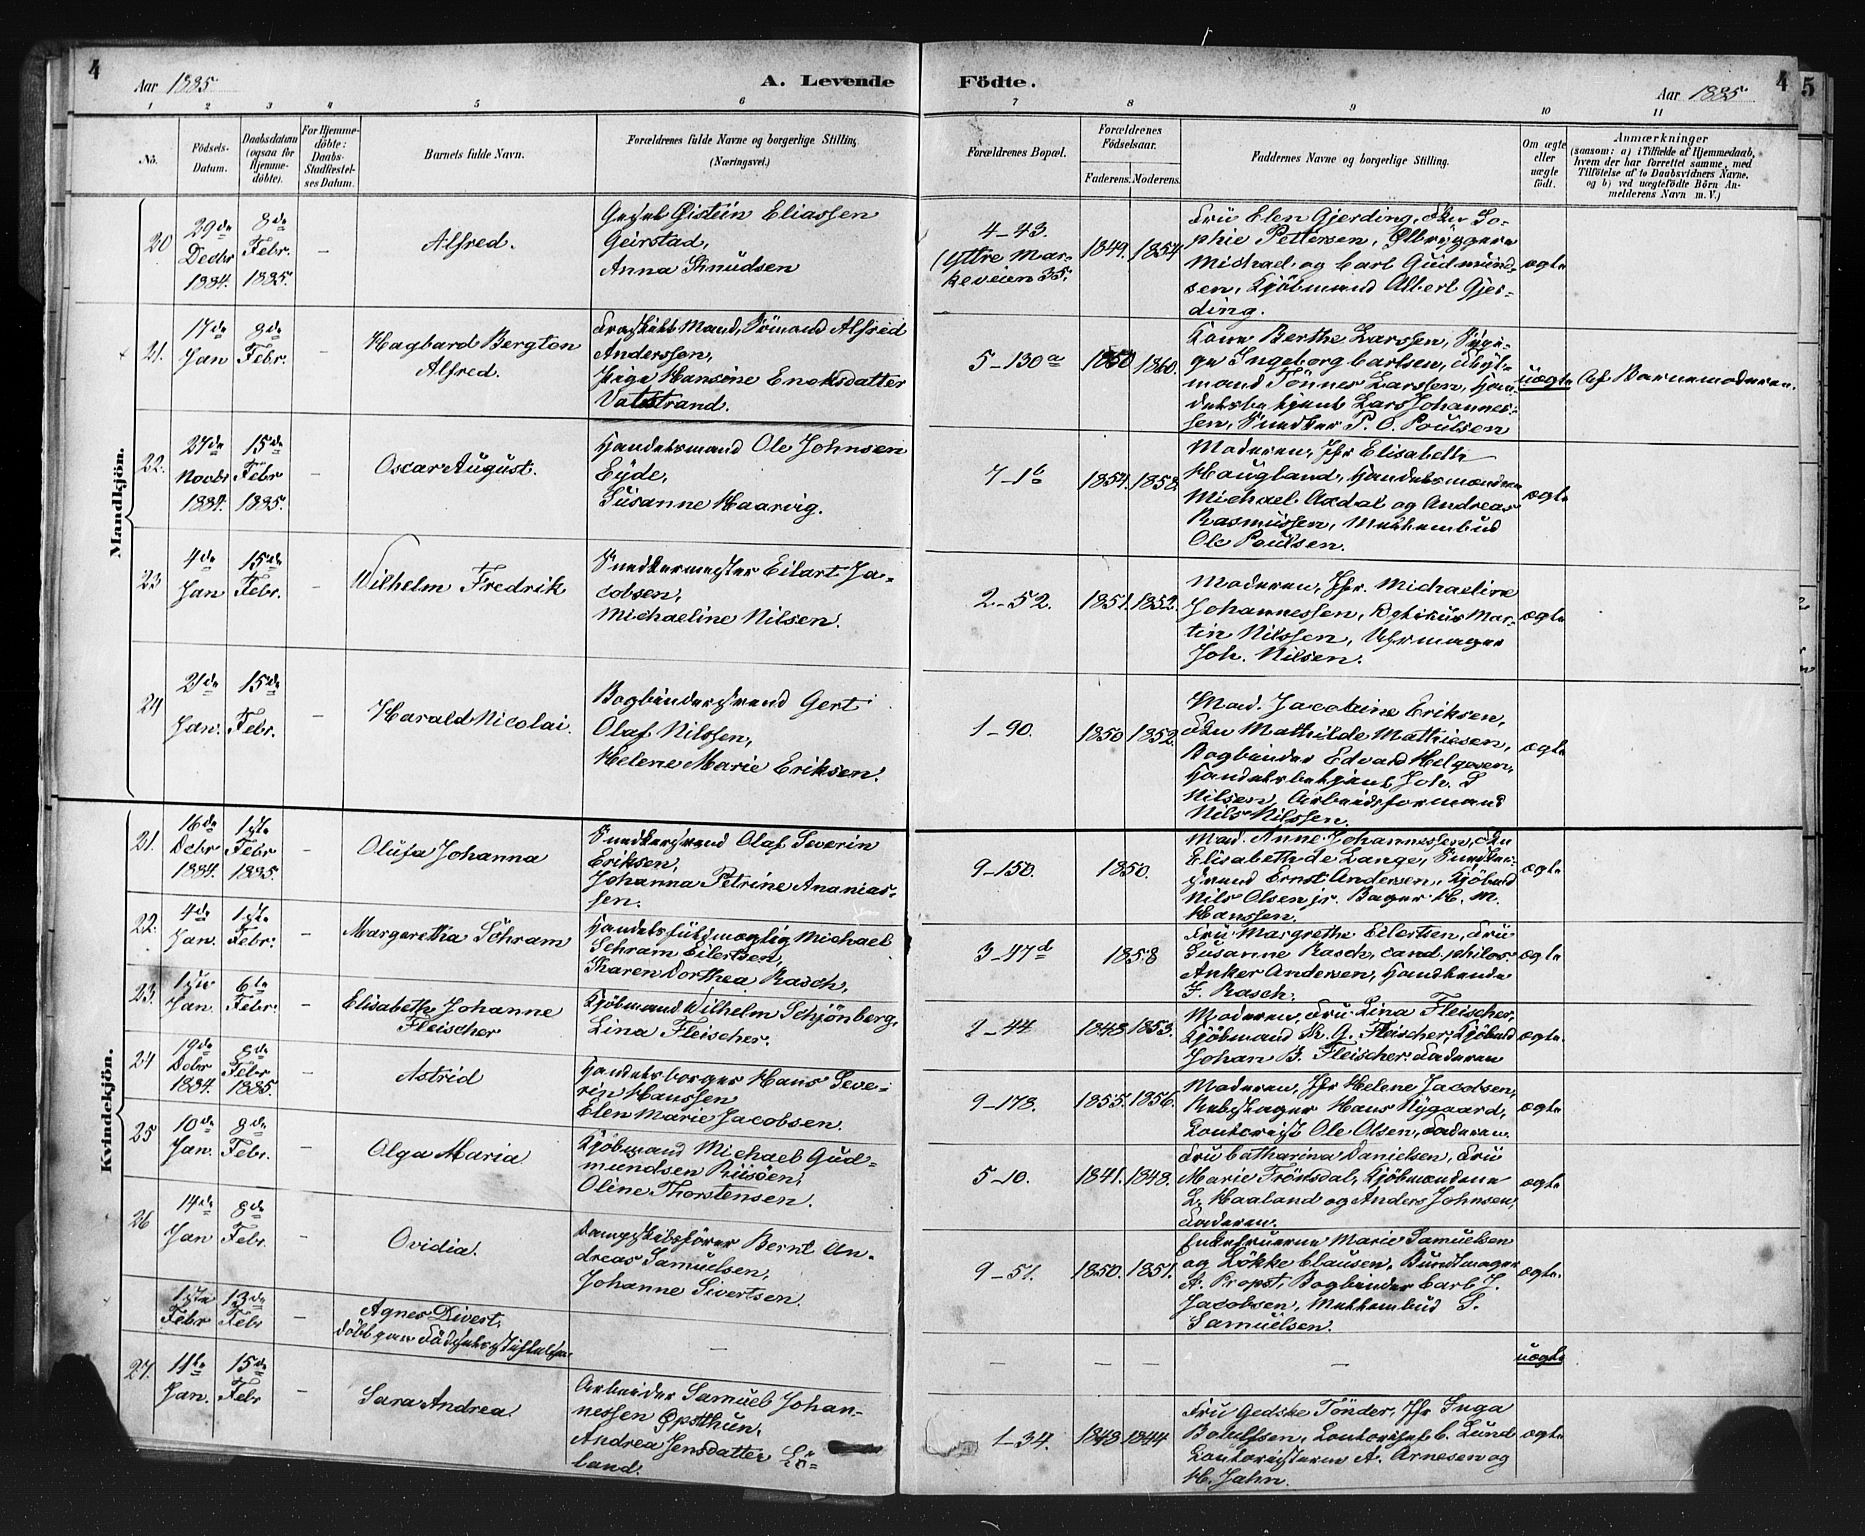 4
Aar 1885.
A. Levende
Födte.
Aar 1885.
4
5
1 2 3 4 5 6 7 8 9 10 11
No.
Födsels-
Datum.
Daabsdatum
(ogsaa for
Hjemme-
döbte).
For Hjemme-
döbte:
Daabs-
Stadfæstel-
ses Datum.
Barnets fulde Navn.
Forældrenes fulde Navne og borgerlige Stilling
(Næringsvei.)
Forældrenes Bopæl.
Forældrenes
Födselsaar.
Faderens. Moderens.
Faddernes Navne og borgerlige Stilling.
Om ægte
eller
uægte
födt.
Anmærkninger
(saasom: a) i Tilfælde af Hjemmedaab,
hvem der har forrettet samme, med
Tilföielse af to Daabsvidners Navne,
og b) ved uægtefödte Börn An-
melderens Navn m. V.)
Mandkjön.
20
29de
Decbr
1884.
8de
Febr.
1885.
-
Alfred.
Øistein Eliassen
Geirstad,
Anna Knudsen
4-43.
(Yttre Mar-
keveien 35.
1849. 1854
Fru Elen Gjerding, Frk So-
phie Pettersen, Ølbryggerne
Michael og Carl Gudmund-
sen, Kjöbmand Albert Gjer-
ding.
ægte
21.
17de
Jan
8de
Febr.
-
Hagbard Bergton
Alfred.
Fraskilt Mand, Sömand Alfred
Anderssen,
Pige Hansine Enoksdatter
Vatstrand.
5-130a
1850 1860.
Kone Berthe Larssen, Pige
Ingeborg Carlsen,
Tönnes Larssen, Han-
delsbetjent Lars Johannes-
sen, Snedker P. O. Poulsen
uægte
Af Barnemoderen.
22.
27de
Novbr
1884.
15de
Febr
1885.
-
Oscar August.
Handelsmand Ole Johnsen
Eyde,
Susanne Haarvig.
7-1b
1854. 1858.
Moderen, Jfr Elisabeth
Haugland, Handelsmændene
Michael Axdal og Andreas
Rasmussen, Mæklerbud
Ole Poulsen.
ægte
23
4de
Jan
15de
Febr.
-
Wilhelm Fredrik
Snedkermester Eilart Ja-
cobsen,
Michaeline Nilsen.
2-52.
1851. 1852.
Moderen, Jfr. Michaeline
Johannessen, Mar-
tin Nilssen, Uhrmager
Joh. Nilsen.
ægte
24
21de
Jan.
15de
Febr.
-
Harald Nicolai.
Bogbindersvend Gert
Olaf Nilssen,
Helene Marie Eriksen.
1-90.
1850 1852.
Mad. Jacobine Eriksen,
Frk Mathilde Mathiesen,
Bogbinder Edvard Helgesen,
Handelsbetjent Joh. S
Nilsen, Arbeidsformand
Nils Nilssen.
ægte
Kvindekjön.
21.
16de
Debr
1884.
1ste
Febr
1885.
-
Olufa Johanna
Snedkersvend Olaf Severin
Eriksen,
Johanna Petrine Ananias-
sen.
9-150.
1850.
Mad. Anne Johannessen, Frk
Elisabeth de Lange, Snedker-
svend Ernst Andersen, Kjöbmd
Nils Olsen jr. Bager H. M.
Hanssen.
ægte
22.
4de
Jan.
1ste
Febr.
-
Margaretha Schram
Handelsfuldmægtig Michael
Schram Eilertsen,
Karen Dorthea Rasch.
3-47d
1858
Fru Margrethe Eilertsen, Fru
Susanne Rasch, cand. philos
Anker Andersen, Handlende
J. Rasch.
ægte
23.
Jan.
6te
Febr.
-
Elisabeth Johanne
Fleischer
Kjöbmand Wilhelm Schjönberg,
Lina Fleischer.
2-44
1848 1853.
Moderen, Fru Lina Fleischer,
Kjöbmand K. G. Fleischer, Kjöbmd
Johan B. Fleischer. Faderen
ægte.
24
19de
Debr
1884.
8de
Febr
1885.
-
Astrid
Handelsborger Hans Seve-
rin Hanssen
Elen Marie Jacobsen.
9-178.
1855. 1856.
Moderen, Jfr Helene Jacobsen,
Rebslager Hans Nygaard,
Contorist Ole Olsen, Faderen.
ægte
25
10de
Jan.
8de
Febr.
-
Olga Maria
Kjöbmand Michael Gud-
mundsen Riisöen,
Oline Thorstensen.
5-10.
1841. 1848.
Fru Catharina Danielsen, Fru
Marie Frönsdal, Kjöbmændene
L. Haaland og Anders Johnsen,
Faderen.
ægte
26
14de
Jan
8de
Febr.
-
Ovidia.
Dampskibsförer Bernt An-
dreas Samuelsen,
Johanne Sivertsen.
9-51.
1850. 1851.
Enkefruerne Marie Samuelsen
og Lökke Clausen, Bundtmager
A. Propst, Bogbinder Carl J.
Jacobsen, Mæklerbud S.
Samuelsen.
ægte.
1ste
Febr
13de
Febr
-
Agnes Divert,
döbt paa Födselsstiftelsen.
-
-
-
-
-
uægte
27.
11te
Jan.
15de
Febr
-
Sara Andrea
Arbeider Samuel Johan-
nessen Opsthun,
Andrea Jensdatter Lö-
land.
1-34.
1848 1844
Fru Gedske Tönder, Jfr Inga
Botulfsen, Contorchef C. Lund
Contoristerne A. Arnesen og
H. Jahn.
ægte